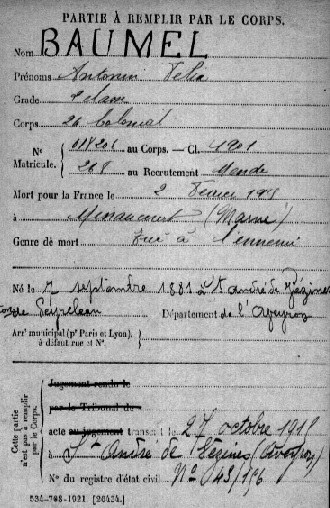 PARTIE À REMPLIR PAR LE CORPS.
Nom BAUMEL
Prénoms Antonin Félix
Grade 2e classe
Corps 24 Colonial
N° au Corps. — Cl. 1901
Matricule. 268 au Recrutement Mende
Mort pour la France le 2 février 1915
à (Marne)
Genre de mort Tué à l'ennemi
Né le 7 septembre 1881 à St André de Vézines
de Peyreleau Département de l'Aveyron
Arr' municipal (p' Paris et Lyon),
à défaut rue et N°.
Cette partie
n'est pas à remplir
par le Corps.
Jugement rendu le
par le Tribunal de
acte ou jugement transcrit le 27 octobre 1918
à St André de Vézines (Aveyron)
N° du registre d'état civil N° 043/156
534-708-1921 [26434.]